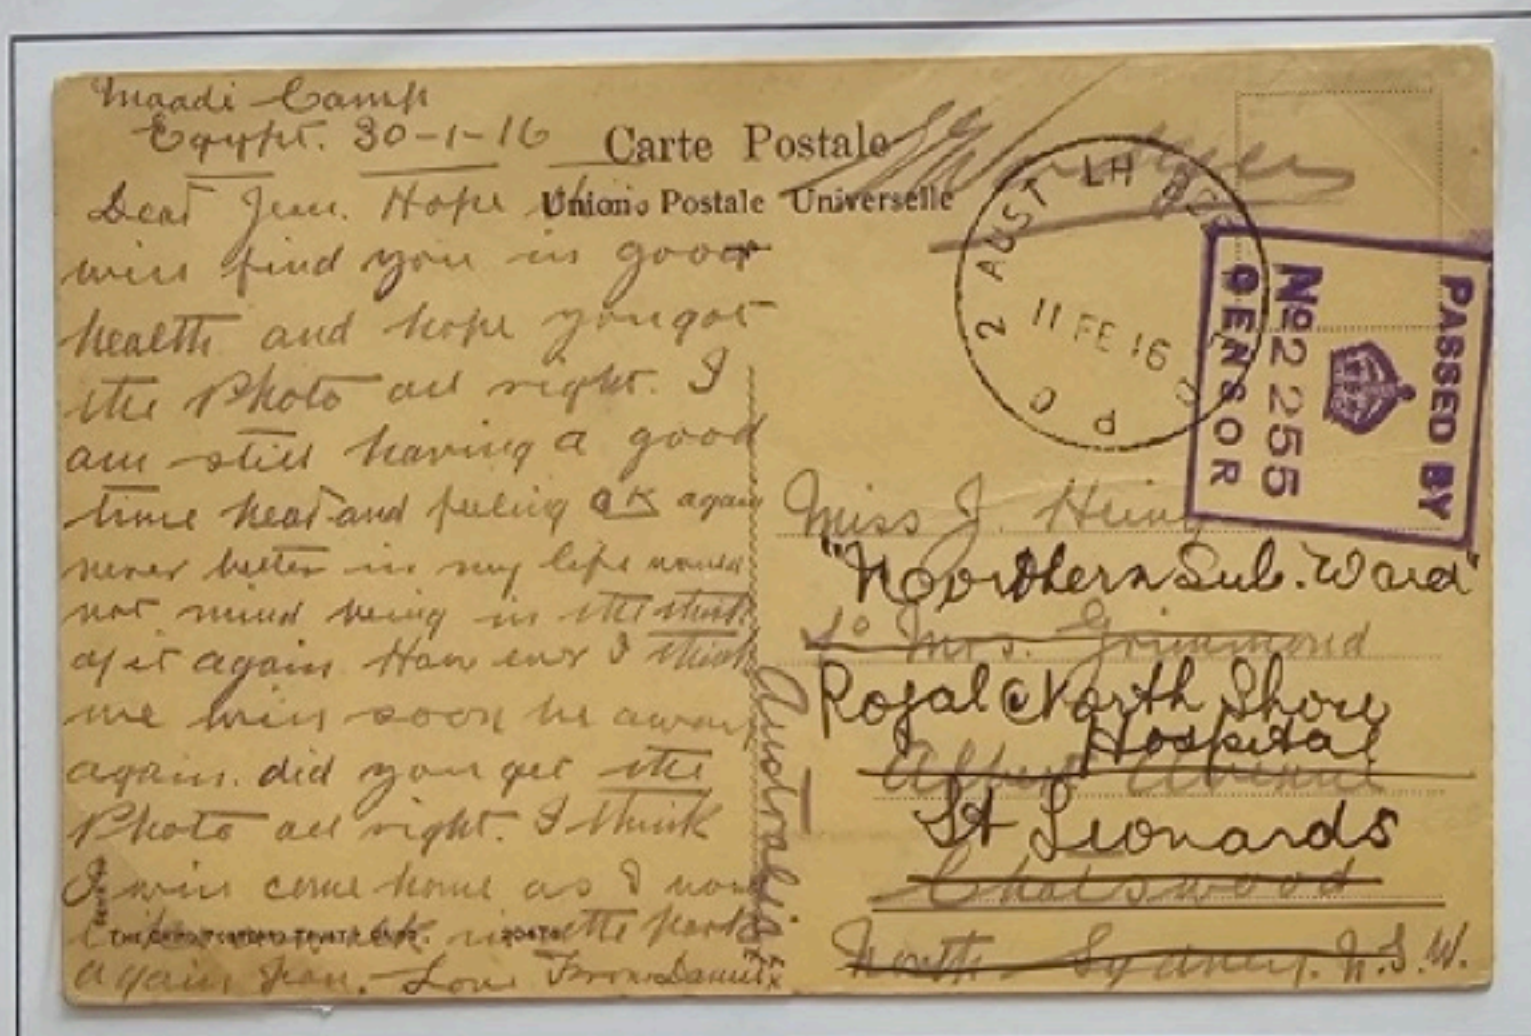 Maadi Camp
Egypt. 30-1-16
Carte Postale
Union Postale Universelle
Dear Jean. Hope this
will find you in good
health and hope you got
the Photo all right. I
am still having a good
time heat and feeling OK again
never better in my life would
not mind being in the thick
of it again. How ever I think
we will soon be away
again. did you get the
Photo all right. I think
I will come home as I now
in the park
again Jean. Love From
THE CAIRO POSTCARD TRUST, CAIRO.
2 AUST LH
11 FE 16
PASSED BY
No 2255
CENSOR
Miss J.
"Northern Sub. Ward"
Mrs. Grimmond
Royal North Shore
Hospital
Albert Avenue
St Leonards
Chatswood
North Sydney. N.S.W.
Australia